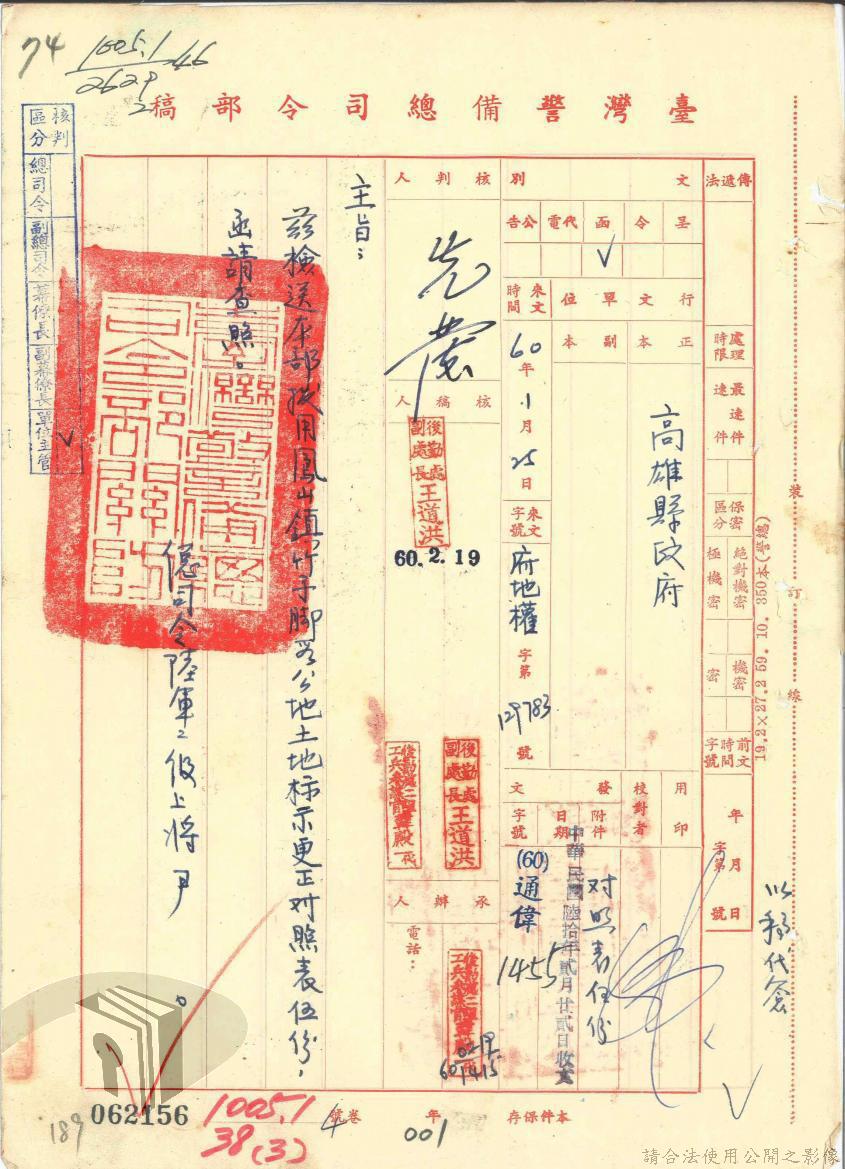 74
1005.1
2629
臺灣警備總司令部稿
核判區分
總司令
副總司令
幕僚長
副幕僚長
單位主管
傳遞法
處理時限
最速件
速件
保密區分
絕對機密
極機密
機密
密
前文時間字號
年月日
字第號
文別
呈
令
函
代電
公告
行文單位
正本
副本
高雄縣政府
來文時間
60年1月25日
來文字號
府地權字第129783號
用印
校對者
發文
附件
对照表伍份
日期
中華民國陸拾年貳月廿貳日收文
字號
(60)通偉1455
核判人
核稿人
後勤處副處長王道洪
60.2.19
後勤處副處長王道洪
承辦人
電話：
主旨：
茲檢送本部撥用鳳山鎮竹子腳段公地土地标示更正对照表伍份，
函請查照。
司令陸軍二級上將尹 。
以稿代簽
裝
訂
線
19.2×27.2 59. 10. 350本(警總)
本件保存 年
卷 4 號
001
062156
1005.1
38(3)
189
請合法使用公開之影像